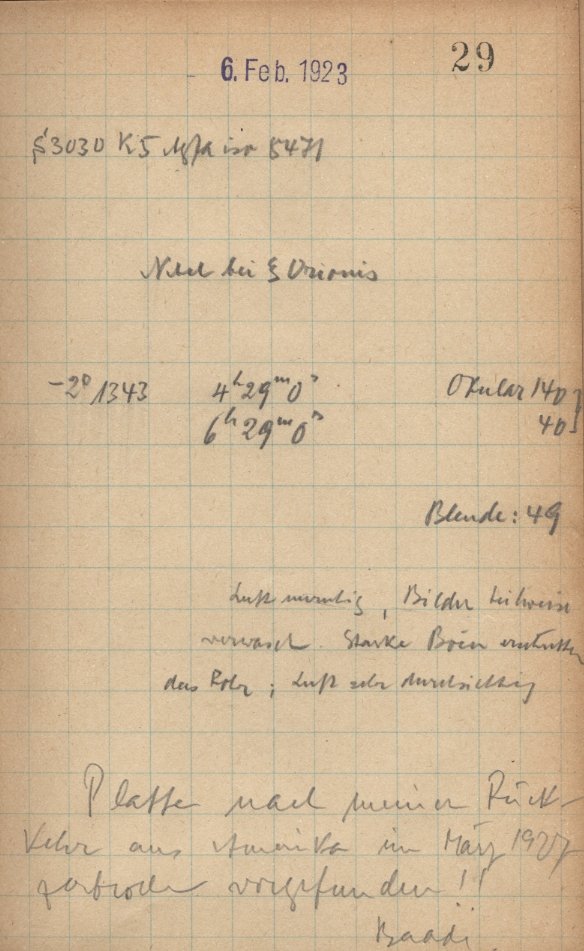 6. Feb. 1923
29
S3030 K5 Agfa iso 5471
Nebel bei ξ Orionis
-2° 1343 4ʰ29ᵐ0ˢ Okular 140
6ʰ29ᵐ0ˢ 40
Blende: 49
Luft unruhig, Bilder teilweise
verwasch. Starke Böen erschüttern
das Rohr; Luft sehr durchsichtig
Platte nach meiner Rück-
kehr aus Amerika im März 1927
zerbrochen vorgefunden!!
Baade